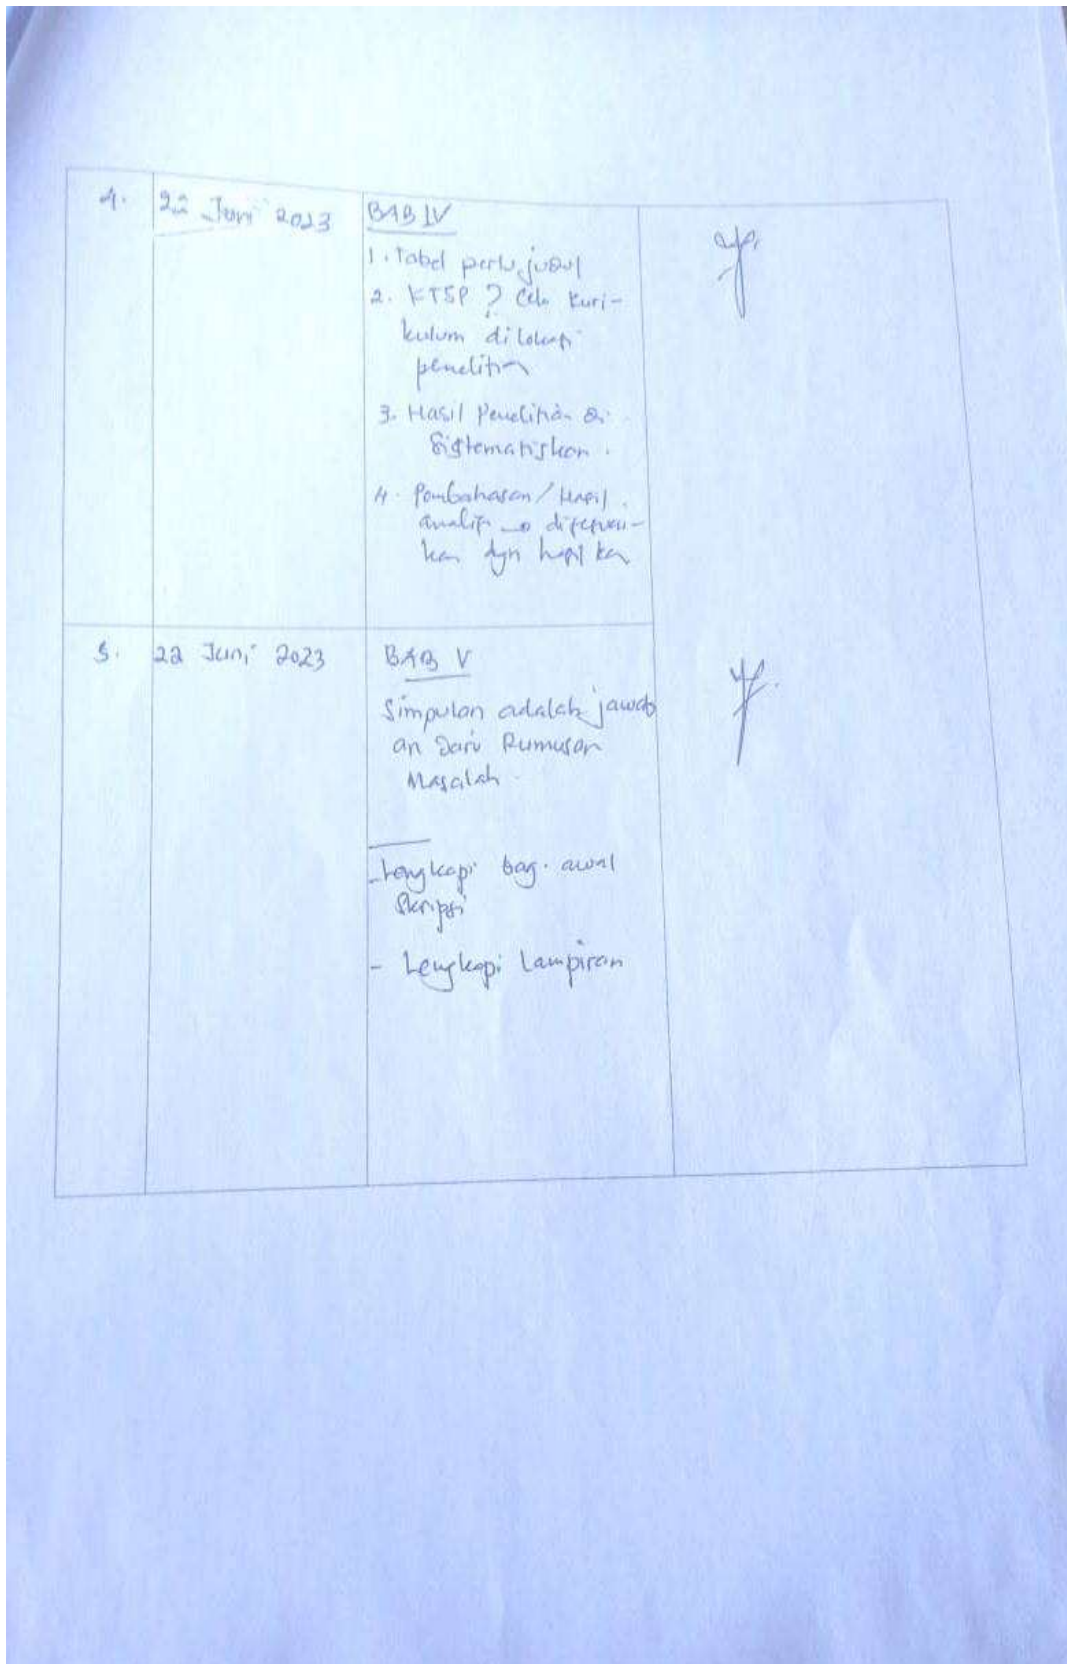 4. 22 Juni 2023 BAB IV
1. Tabel perlu judul
2. KTSP ? Cek Kuri-
kulum dilokasi
penelitian
3. Hasil Penelitian di
Sistematiskan.
4. Pembahasan/Hasil
analisis → disesuai-
kan dgn hasil
5. 22 Juni 2023 BAB V
Simpulan adalah jawab
an dari Rumusan
Masalah.
- Lengkapi bag. awal
Skripsi
- Lengkapi Lampiran